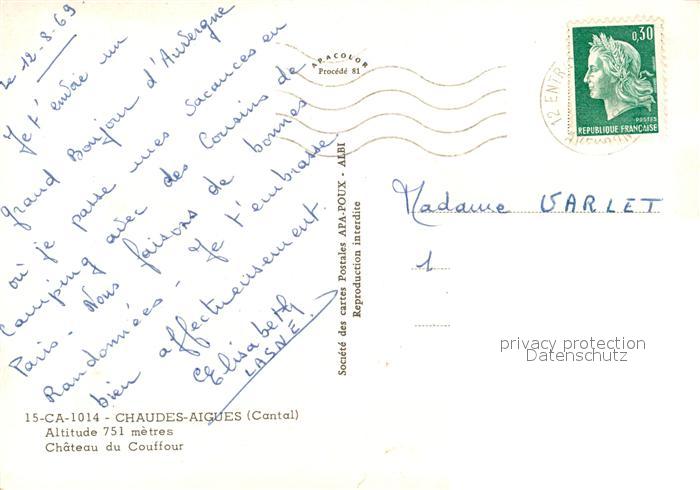 le 12-8-69
Je t'envoie un
grand Bonjour d'Auvergne
où je passe mes vacances en
Camping avec des Cousins de
Paris - Nous faisons de bonnes
Randonnées - Je t'embrasse
bien affectueusement.
Elisabeth
LASNE.
15-CA-1014 - CHAUDES-AIGUES (Cantal)
Altitude 751 mètres
Château du Couffour
APACOLOR
Procédé 81
Société des cartes Postales APA-POUX - ALBI
Reproduction interdite
0,30
POSTES
REPUBLIQUE FRANÇAISE
12 ENTR
Madame VARLET
1
privacy protection
Datenschutz